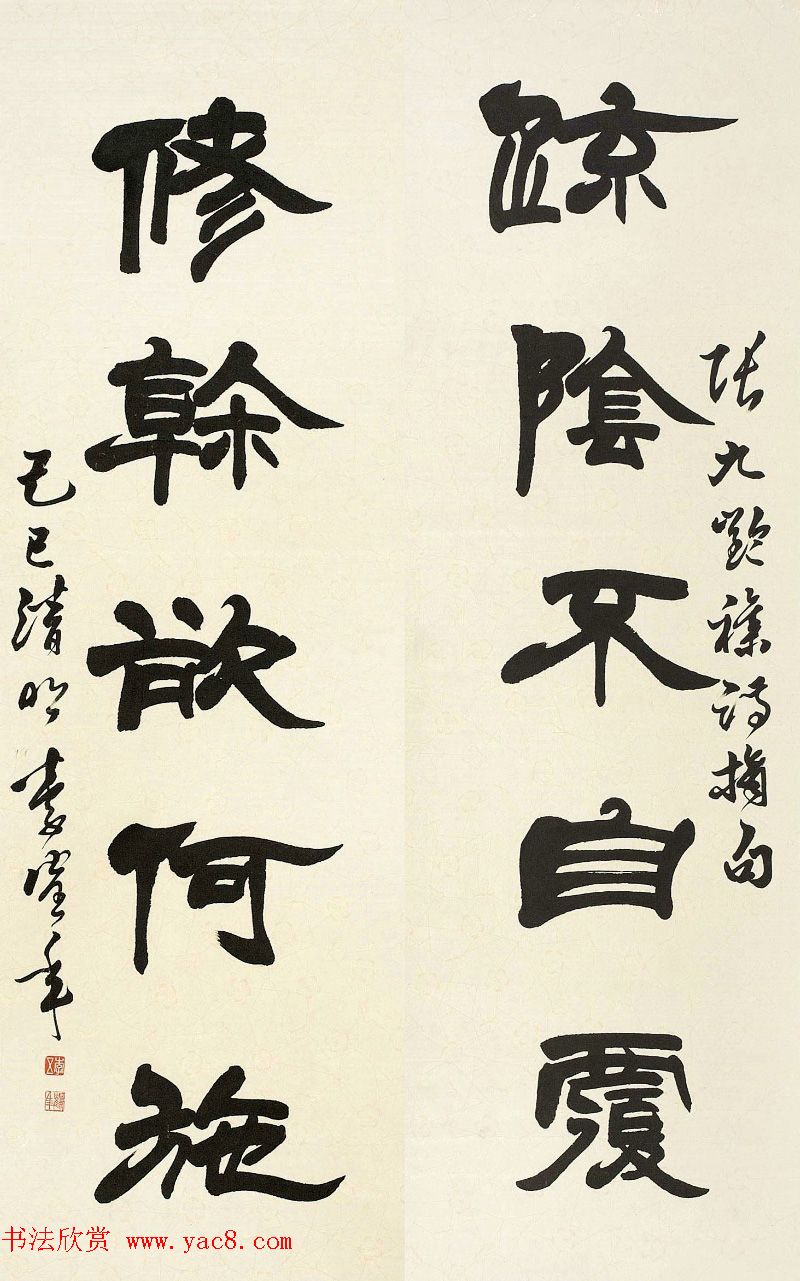 張九齡雜詩摘句
疏陰不自覆
修榦欲何施
己巳清明
书法欣赏 www.yac8.com